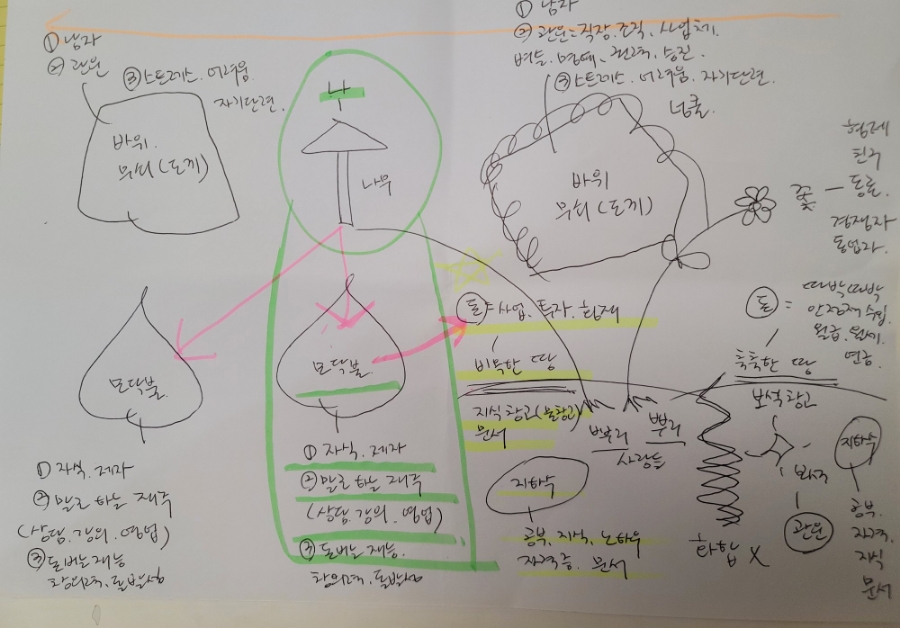 ① 남자
② 관운
③ 스트레스. 어려움.
자기단련.
바위.
무쇠 (도끼)
나
나무
① 남자
② 관운 = 직장. 조직. 사업체.
벼슬. 명예. 권력. 승진.
③ 스트레스. 어려움. 자기단련.
넝쿨.
바위
무쇠 (도끼)
꽃
형제
친구
동료.
경쟁자
동업자.
모닥불
모닥불.
돈 = 사업. 투자. 횡재
비옥한 땅
지식창고 (물창고)
문서
뿌리
뿌리
사람들
돈 =
따박따박
안정적 수입
월급. 월세.
연금.
축축한 땅
보석창고
보석
관운
화합 X
지하수
공부.
자격.
지식
문서
① 자식. 제자
② 말로 하는 재주
(상담. 강의. 영업)
③ 돈버는 재능
창의력. 돌발성
① 자식. 제자
② 말로 하는 재주
(상담. 강의. 영업)
③ 돈버는 재능.
창의력. 돌발성
지하수
공부. 지식. 노하우
자격증. 문서